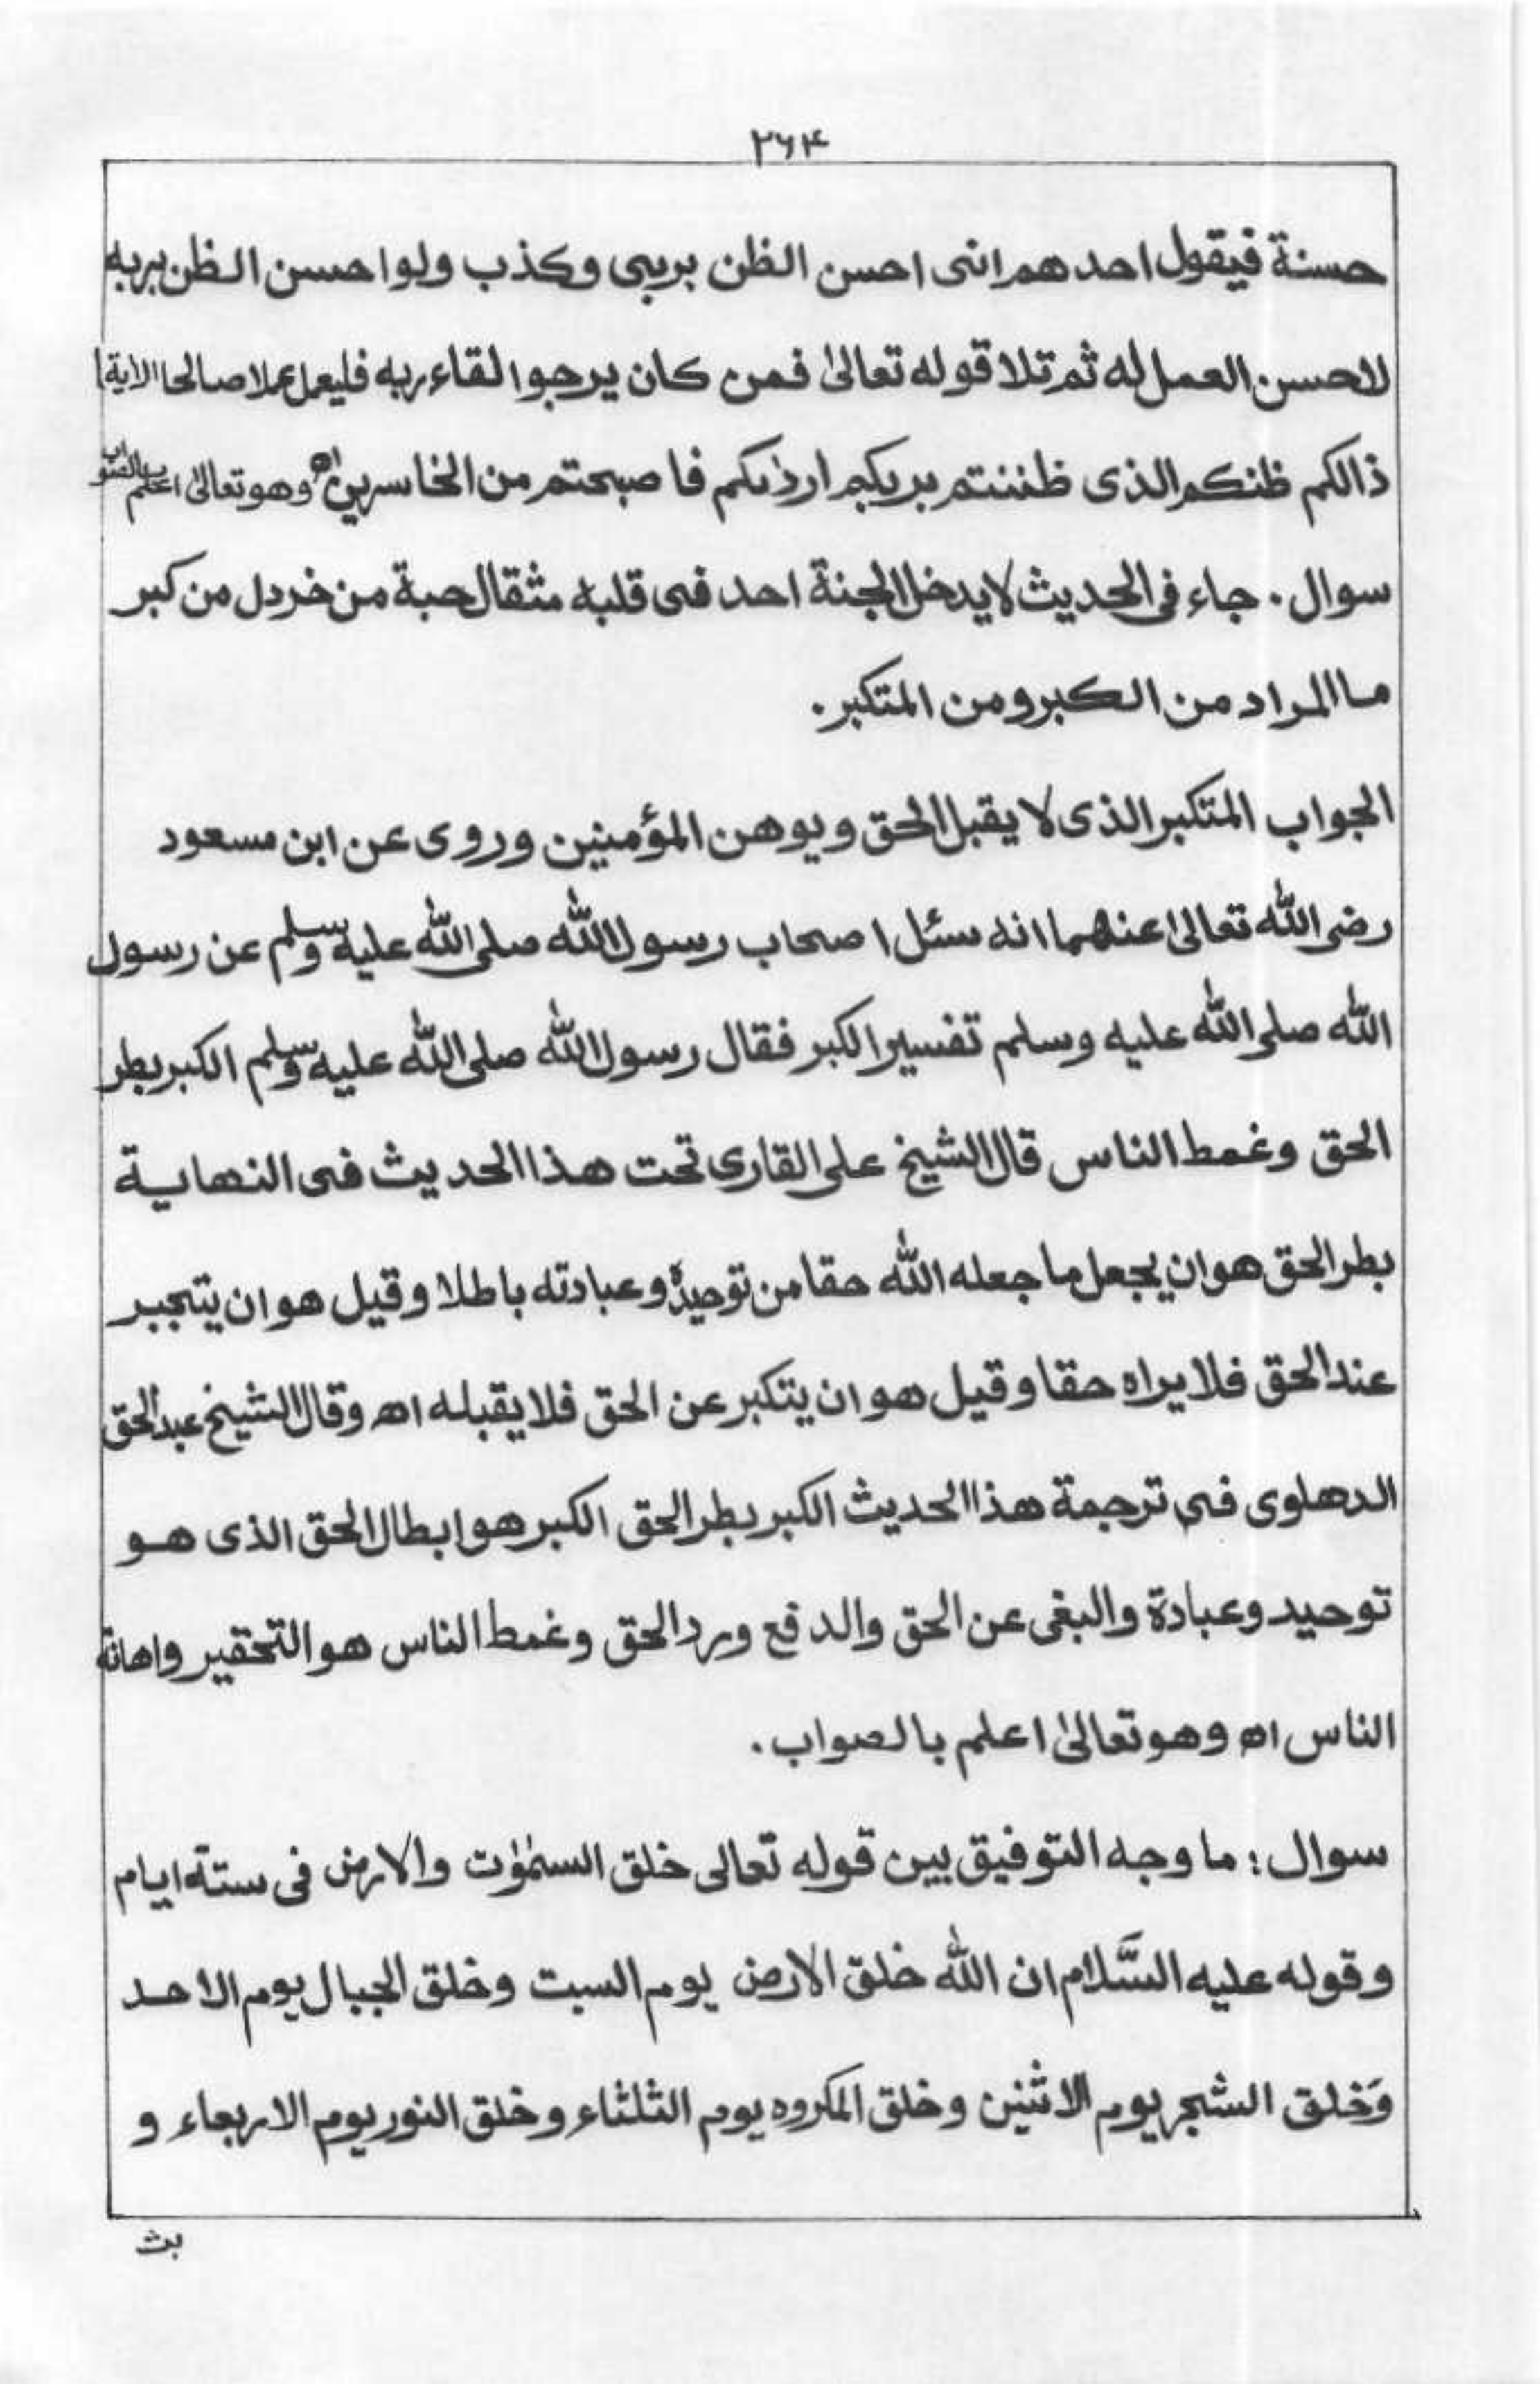 ۲۶۴
حسنة فيقول احدهم انى احسن الظن بربى وكذب ولو احسن الظن بربه
لاحسن العمل له ثم تلا قوله تعالىٰ فمن كان يرجوا لقاء ربه فليعمل عملا صالحا الاية
ذالكم ظنكم الذى ظننتم بربكم ارذىكم فاصبحتم من الخاسرين اھ وهو تعالىٰ اعلم بالصواب
سوال ۔ جاء فى الحديث لا يدخل الجنة احد فى قلبه مثقال حبة من خردل من كبر
ما المراد من الكبر ومن المتكبر ۔
الجواب المتكبر الذى لا يقبل الحق ويوهن المؤمنين وروى عن ابن مسعود
رضى الله تعالىٰ عنهما انه سئل اصحاب رسول الله صلى الله عليه وسلم عن رسول
الله صلى الله عليه وسلم تفسير الكبر فقال رسول الله صلى الله عليه وسلم الكبر بطر
الحق وغمط الناس قال الشيخ على القارى تحت هذا الحديث فى النهاية
بطر الحق هو ان يجعل ما جعله الله حقا من توحيده وعبادته باطلا وقيل هو ان يتجبر
عند الحق فلا يراه حقا وقيل هو ان يتكبر عن الحق فلا يقبله اھ وقال الشيخ عبد الحق
الدهلوى فى ترجمة هذا الحديث الكبر بطر الحق الكبر هو ابطال الحق الذى هو
توحيد وعبادة والبغى عن الحق والدفع ورد الحق وغمط الناس هو التحقير واهانة
الناس اھ وهو تعالىٰ اعلم بالصواب ۔
سوال : ما وجه التوفيق بين قوله تعالى خلق السمٰوٰت والارض فى ستة ايام
وقوله عليه السَّلام ان الله خلق الارض يوم السبت وخلق الجبال يوم الاحد
وَخلق الشجر يوم الاثنين وخلق المكروه يوم الثلثاء وخلق النور يوم الاربعاء و
بث